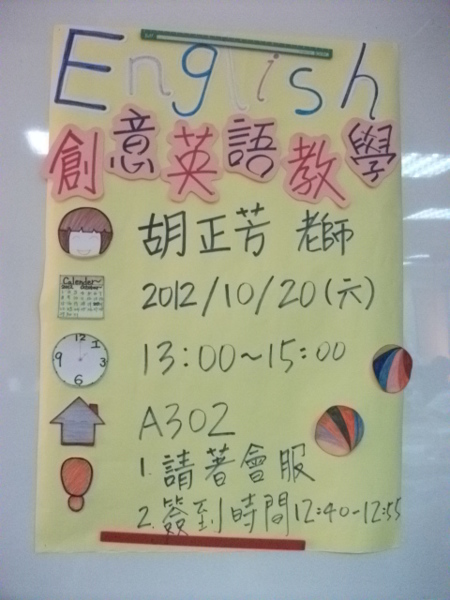 English
創意英語教學
胡正芳 老師
Calendar
2012/10/20(六)
12
3
6
9
13:00~15:00
A302
1.請著會服
2.簽到時間12:40-12:55